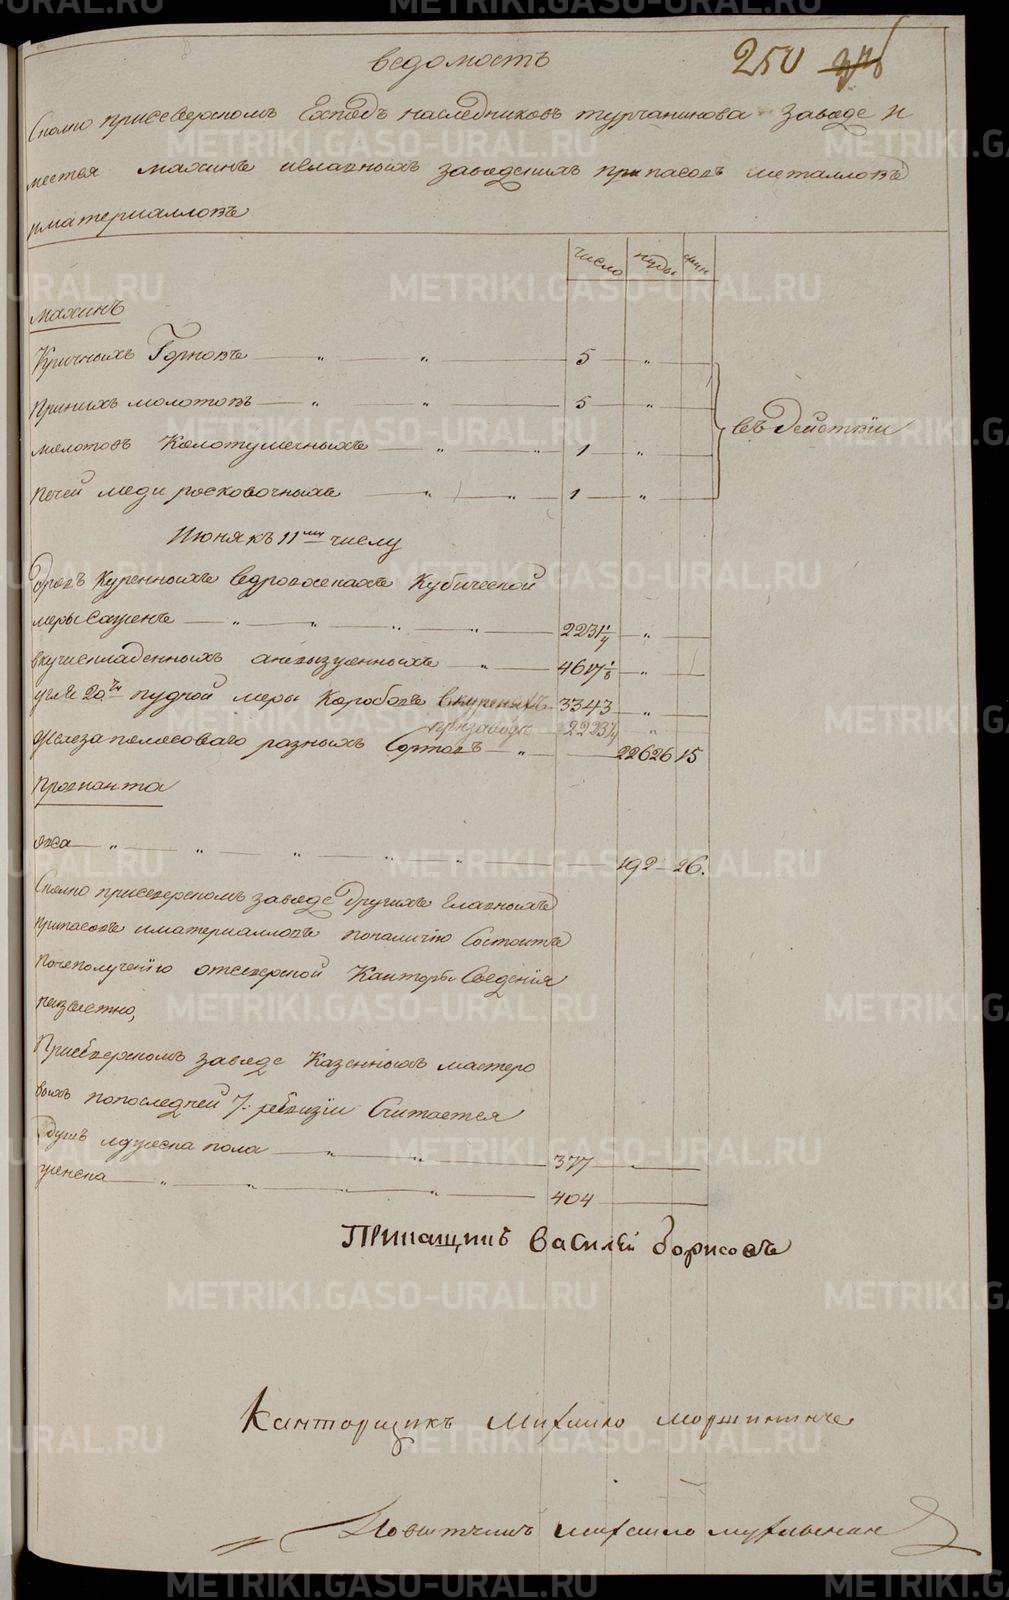 ведомость
250
Сколко присеверскомъ Господъ наследниковъ турчанинова заводе и
местъя махинъ иглавныхъ заведениъ припасовъ металловъ
иматериалловъ
число пуды фун
махинъ
Кричныхъ Горновъ — „ — „ — 5 — „
Причихъ молотовъ — „ — „ — 5 — „
молотовъ Колотушечныхъ — „ — „ — 1 — „
въ действіи
печей меди росковочныхъ — „ — „ — 1 — „
Июня къ 11му числу
Дровъ Куренныхъ Кубической
меры Саженъ — „ — „ — „ — „ — 2231 1/4 — „
вкучискладенныхъ — „ — 4617 1/8 — „
угля 20ти пудной меры Коробовъ вкуреняхъ 3343 — „
призаводе 2223 1/4 „
железа полосоваго разныхъ Сортовъ — „ — 22626 15
Провианта
ржи — „ — „ — „ — „ — „ — 192 — 26.
Сколко присеверскомъ заводе Другихъ Главныхъ
Припасовъ иматериалловъ поналичию Состоитъ
понеполучению отсеверской Канторы Сведения
неизвестно,
Присеверскомъ заводе Казенныхъ мастеро
выхъ попоследней 7й ревизии Считается
Душъ мужеска пола — „ — „ — 377 — „ —
женска — „ — „ — „ — „ — 404
Прикащикъ Василей Борисовъ
Канторщикъ Михаило
Повытчикъ михаило